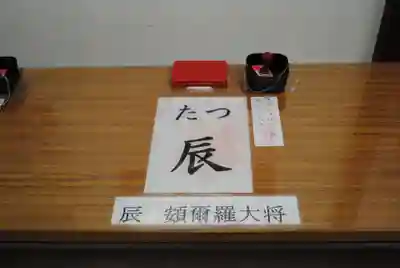 たつ
辰
辰 頞爾羅大将